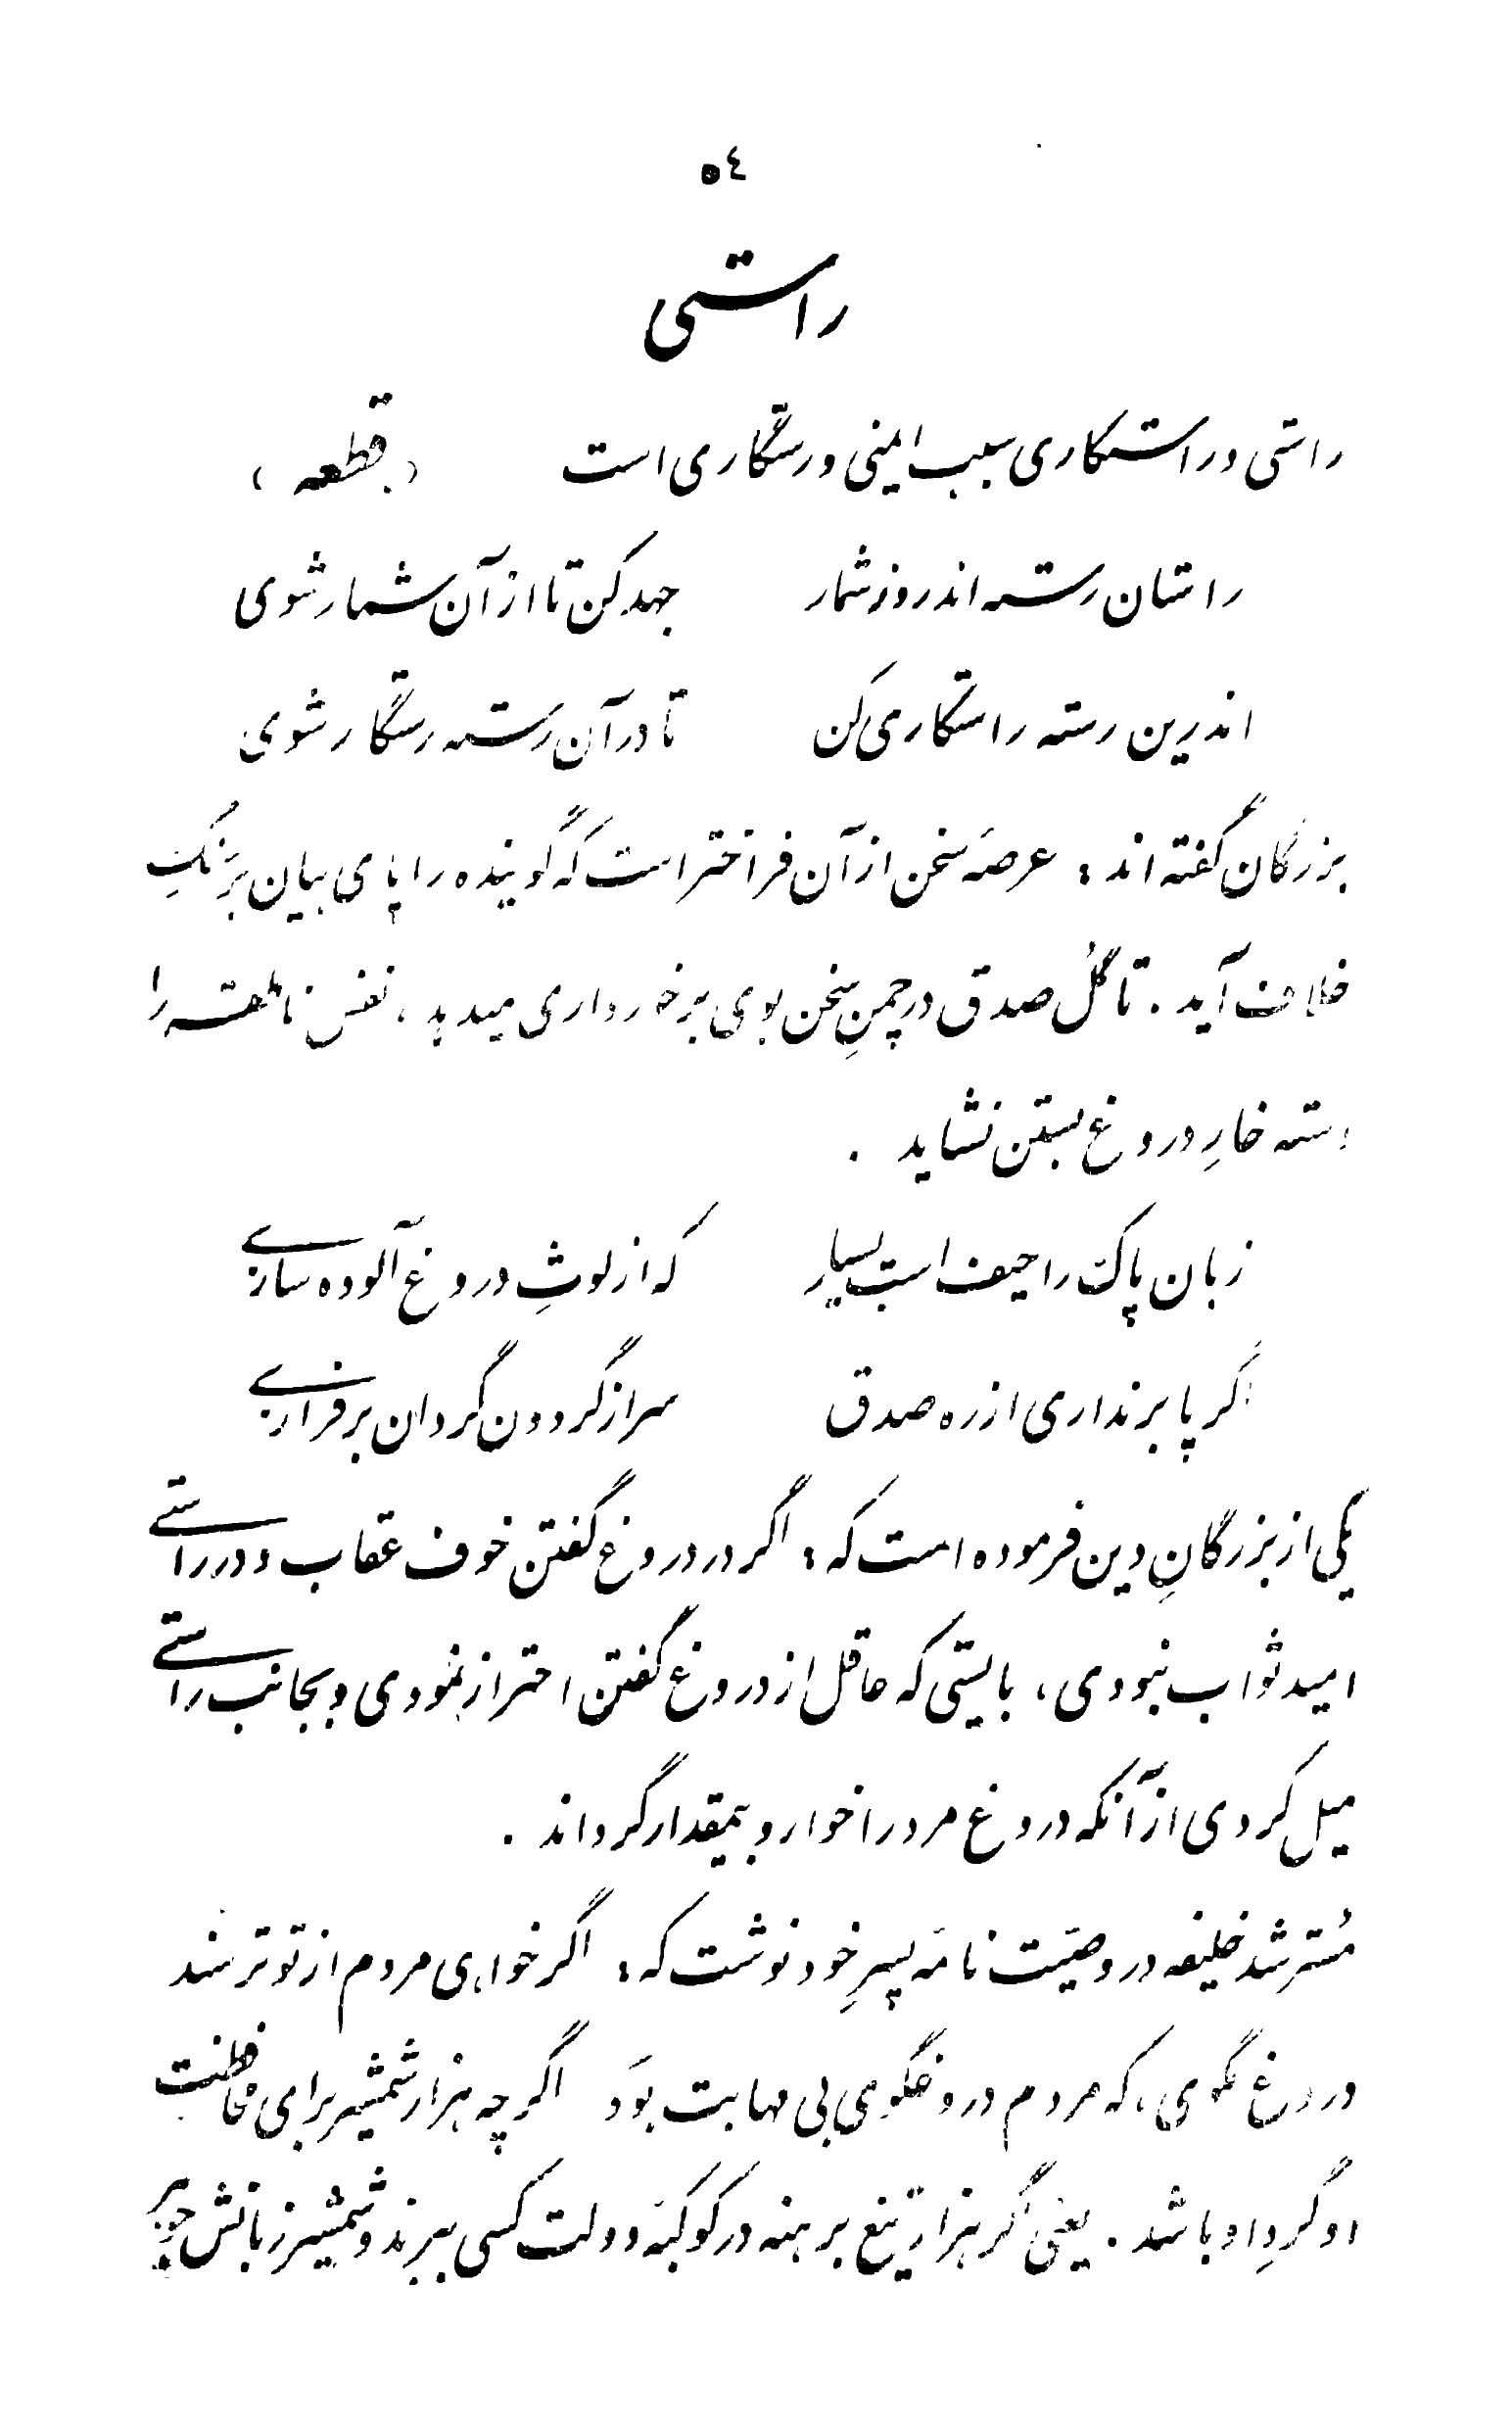 ٥٤
راستی
راستی و راستکاری سبب ایمنی و رستگاری است ( قطعه )
راستان رسته اند روز شمار جهد کن تا از آن شمار شوی
اندرین رسته راستکاری کن تا در آن رسته رستگار شوی
بزرگان گفته اند : عرصهٔ سخن از آن فراختر است که گوینده را پای بیان بر سنگِ
خلاف آید . تا گلُ صدق در چمنِ سخن بوی برخورداری میدهد ، نفس ناطقه را
دسته خارِ دروغ بستن نشاید .
زبان پاک را حیف است بسیار که از لوثِ دروغ آلوده سازی
اگر پا برنداری از ره صدق سر از گردون گردان برفرازی
یکی از بزرگانِ دین فرموده است که : اگر در دروغ گفتن خوف عقاب و در راستی
امید ثواب نبودی ، بایستی که عاقل از دروغ گفتن احتراز نمودی و بجانب راستی
میل کردی از آنکه دروغ مرد را خوار و بیمقدار گرداند .
مُسترشد خلیفه در وصیّت نامهٔ پسرِ خود نوشت که : اگر خواهی مردم از تو ترسند
دروغ مگوی ، که مردم دروغگوی بی مهابت بوَد اگر چه هزار شمشیر برای محافظت
او گردِ او باشد . یعنی اگر هزار تیغ برهنه در کوکبهٔ دولت کسی ببرند و شمشیر زبانش جوهر